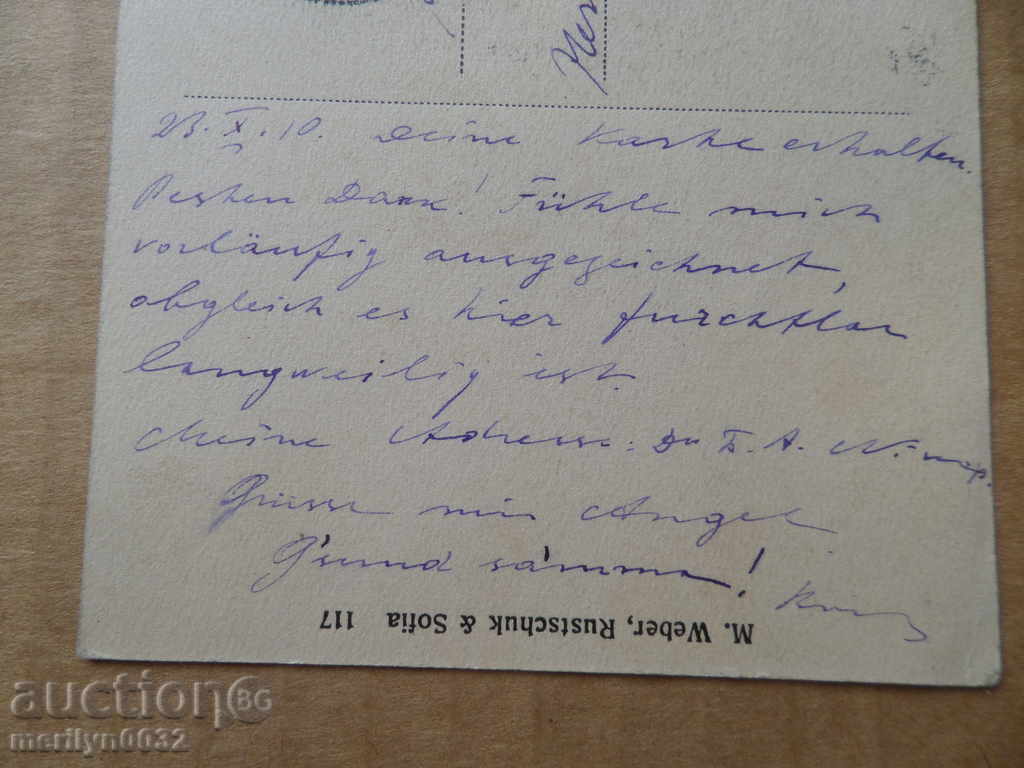 23. X. 10. Deine Karte erhalten.
Besten Dank! Fühle mich
vorläufig ausgezeichnet,
obgleich es hier furchtbar
langweilig ist.
Meine Adresse: Dr
Grüsse mir Angel
G'sund samma!
M. Weber, Rustschuk & Sofia 117
auction BG
merilyn0032